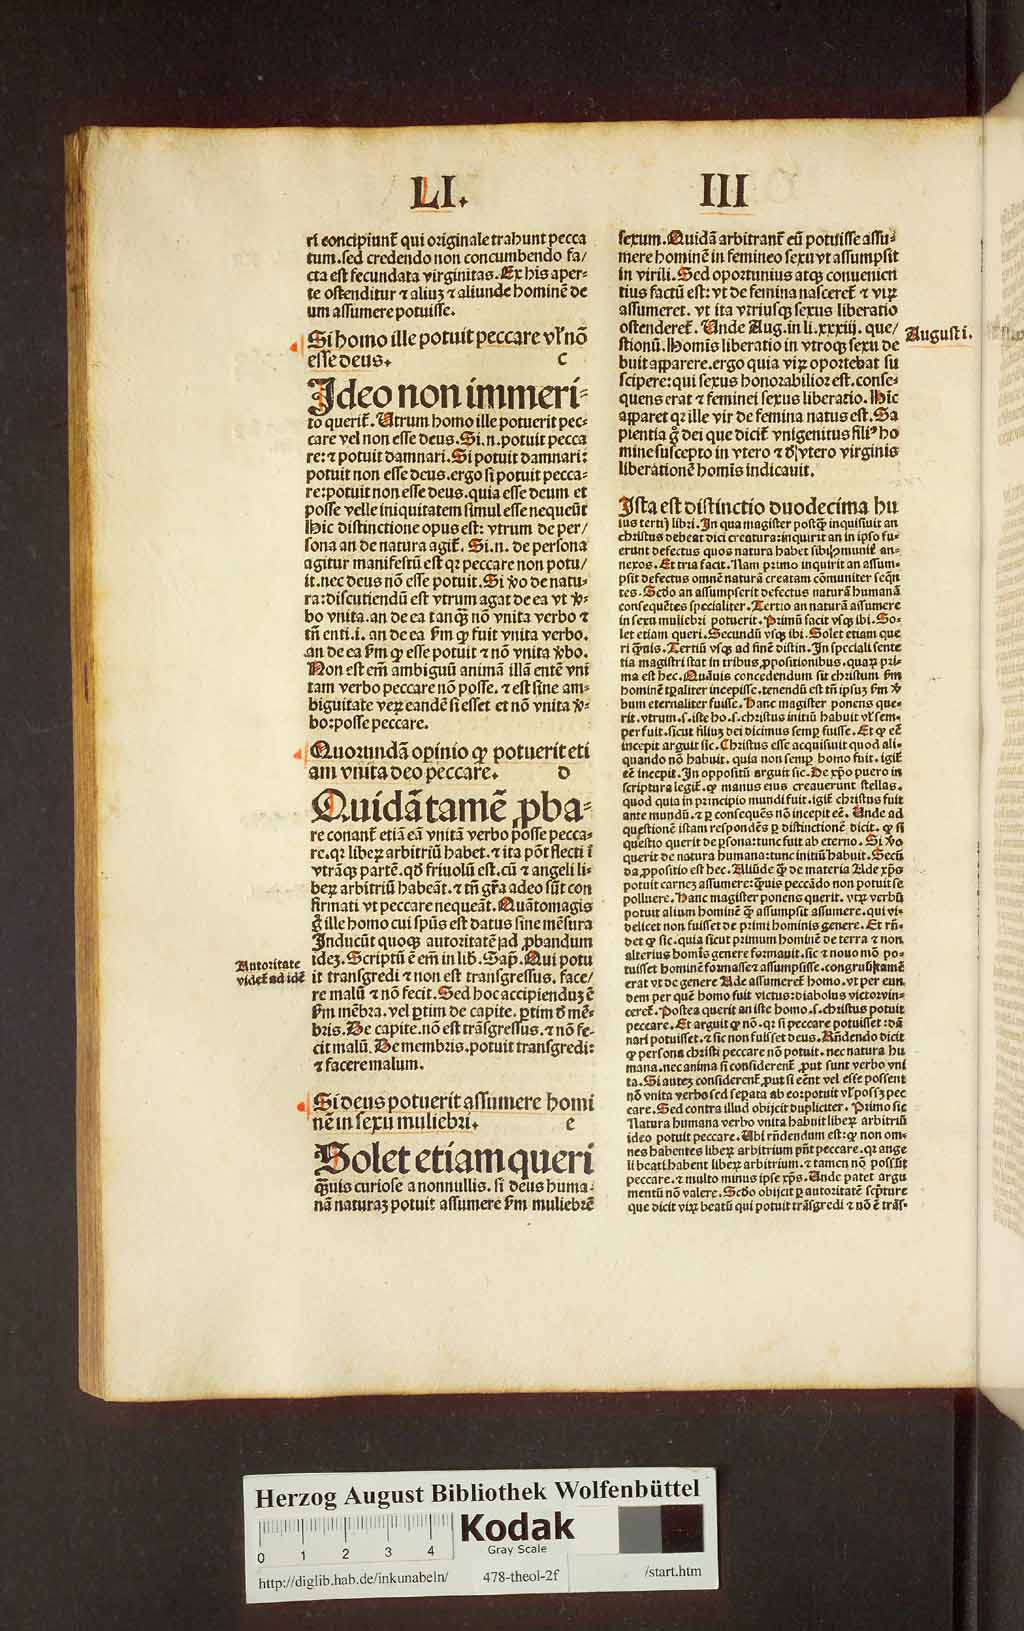 LI.
III
ri concipiunt̃ qui originale trahunt pecca
tum. sed credendo non concumbendo fa/
cta est fecundata virginitas. Ex his aper-
te ostenditur ⁊ aliuȝ ⁊ aliunde hominē de
um assumere potuisse.
Si homo ille potuit peccare vl' nō
esse deus. c
Ideo non immeri-
to querit̃. Utrum homo ille potuerit pec-
care vel non esse deus. Si .n. potuit pecca
re: ⁊ potuit damnari. Si potuit damnari:
potuit non esse deus. ergo si potuit pecca-
re: potuit non esse deus. quia esse deum et
posse velle iniquitatem simul esse nequeūt
Hic distinctione opus est: vtrum de per/
sona an de natura agit̃. Si .n. de persona
agitur manifestū est qꝛ peccare non potu/
it. nec deus nō esse potuit. Si v̄o de natu-
ra: discutiendū est vtrum agat de ea vt v̄-
bo vnita. an de ea tanꝙ̄ nō vnita verbo ⁊
tn̄ enti .i. an de ea s̄m ꝙ fuit vnita verbo.
an de ea s̄m ꝙ esse potuit ⁊ nō vnita v̄bo.
Non est em̄ ambiguū animā illā entē vni
tam verbo peccare nō posse. ⁊ est sine am-
biguitate veꝝ eandē si esset et nō vnita v̄-
bo: posse peccare.
Quorundā opinio ꝙ potuerit eti
am vnita deo peccare. d
Quidā tamē ꝓba-
re conant̃ etiā eā vnitā verbo posse pecca-
re. qꝛ libeꝝ arbitriū habet. ⁊ ita pōt flecti ī
vtrāqꝫ partē. qd̄ friuolū est. cū ⁊ angeli li-
beꝝ arbitriū habeāt. ⁊ tn̄ gr̄a adeo sūt con
firmati vt peccare nequeāt. Quāto magis
g̊ ille homo cui sp̄us est datus sine mēsura
Inducūt quoqꝫ autoritatē ad ꝓbandum
ideȝ. Scriptū ē em̄ in lib̄. Sap̄. Qui potu
it transgredi ⁊ non est transgressus. face/
re malū ⁊ nō fecit. Sed hoc accipienduȝ ē
s̄m mēbra. vel ꝑtim de capite. ꝑtim d̄ mē-
bris. De capite. nō est trāsgressus. ⁊ nō fe-
cit malū. De membris. potuit transgredi:
⁊ facere malum.
Autoritate
videt̃ ad idē
Si deus potuerit assumere homi
nē in sexu muliebri. e
Solet etiam queri
ꝙ̄uis curiose a nonnullis. si deus huma-
nā naturaȝ potuit assumere s̄m muliebrē
sexum. Quidā arbitrant̃ eū potuisse assu-
mere hominē in femineo sexu vt assumpsit
in virili. Sed oportunius atqꝫ conuenien
tius factū est: vt de femina nasceret̃ ⁊ viꝝ
assumeret. vt ita vtriusqꝫ sexus liberatio
ostenderet̃. Unde Aug. in li. xxxiij. que/
stionū. Hominis liberatio in vtroqꝫ sexu de
buit apparere. ergo quia viꝝ oportebat su
scipere: qui sexus honorabilior est. conse-
quens erat ⁊ feminei sexus liberatio. Hic
apparet qꝛ ille vir de femina natus est. Sa
pientia g̊ dei que dicit̃ vnigenitus filiꝰ ho
mine suscepto in vtero ⁊ d̄ vtero virginis
liberationē homīs indicauit.
Augusti.
Ista est distinctio duodecima hu
ius tertij libri. In qua magister postꝙ̄ inquisiuit an
christus debeat dici creatura: inquirit an in ipso fu-
erunt defectus quos natura habet sibijpsi muniꝉ an-
nexos. Et tria facit. Nam primo inquirit an assum-
psit defectus omnē naturā creatam cōmuniter seq̄n
tes. Scd̄o an assumpserit defectus naturā humanā
consequētes specialiter. Tertio an naturā assumere
in sexu muliebri potuerit. Primū facit vsqꝫ ibi. So-
let etiam queri. Secundū vsqꝫ ibi. Solet etiam que
ri ꝙ̄uis. Tertiū vsqꝫ ad finē distin. In speciali sente
tia magistri stat in tribus ꝓpositionibus. quaꝝ pri-
ma est hec. Quāuis concedendum sit christum s̄m
hominē tꝑaliter incepisse. tenendū est tn̄ ipsuȝ s̄m v̄
bum eternaliter fuisse. Hanc magister ponens que-
rit. vtrum .s. iste ho. s. christus initiū habuit vl' sem-
per fuit. sicut filiuȝ dei dicimus semꝑ fuisse. Et ꝙ eē
incepit arguit sic. Christus esse acquisiuit quod ali-
quando nō habuit. quia non semꝑ homo fuit. igit̃
eē incepit. In oppositū arguit sic. De xp̄o puero in
scriptura legit̃. ꝙ manus eius creauerunt stellas.
quod quia in principio mundi fuit. igit̃ christus fuit
ante mundū. ⁊ ꝑ consequēs nō incepit eē. Unde ad
questionē istam respondēs ꝑ distinctionē dicit. ꝙ si
questio querit de ꝑsona: tunc fuit ab eterno. Si v̄o
querit de natura humana: tunc initiū habuit. Secū
da ꝓpositio est hec. Aliūde ꝙ̄ de materia Ade xp̄s
potuit carneȝ assumere: ꝙ̄uis peccādo non potuit se
polluere. Hanc magister ponens querit. vtꝝ verbū
potuit alium hominē ꝙ̄ assumpsit assumere. qui vi-
delicet non fuisset de primi hominis genere. Et rn̄-
det ꝙ sic. quia sicut primum hominē de terra ⁊ non
alterius homīs genere formauit. sic ⁊ nouo mō po-
tuisset hominē formasse ⁊ assumpsisse. congruū tamē
erat vt de genere Ade assumeret̃ homo. vt per eun
dem per quē homo fuit victus: diabolus victor vin-
ceret̃. Postea querit an iste homo .s. christus potuit
peccare. Et arguit ꝙ nō. qꝛ si peccare potuisset: dā
nari potuisset. ⁊ sic non fuisset deus. Rn̄dendo dicit
ꝙ persona christi peccare nō potuit. nec natura hu
mana. nec anima si considerent̃ ꝓut sunt verbo vni
ta. Si auteȝ considerent̃ ꝓut si eēnt vel esse possent
nō vnita verbo sed sepata ab eo: potuit vl' possȝ pec
care. Sed contra illud obijcit dupliciter. Primo sic
Natura humana verbo vnita habuit libeꝝ arbitriū
ideo potuit peccare. Ubi rn̄dendum est: ꝙ non om-
nes habentes libeꝝ arbitrium pn̄t peccare. qꝛ ange
li beati habent libeꝝ arbitrium. ⁊ tamen nō possūt
peccare. ⁊ multo minus ipse xp̄s. Unde patet argu
mentū nō valere. Scd̄o obijcit ꝑ autoritatē scp̄ture
que dicit viꝝ beatū qui potuit trāsgredi ⁊ nō ē trās-
Herzog August Bibliothek Wolfenbüttel
0 1 2 3 4
Kodak
Gray Scale
http://diglib.hab.de/inkunabeln/ 478-theol-2f /start.htm